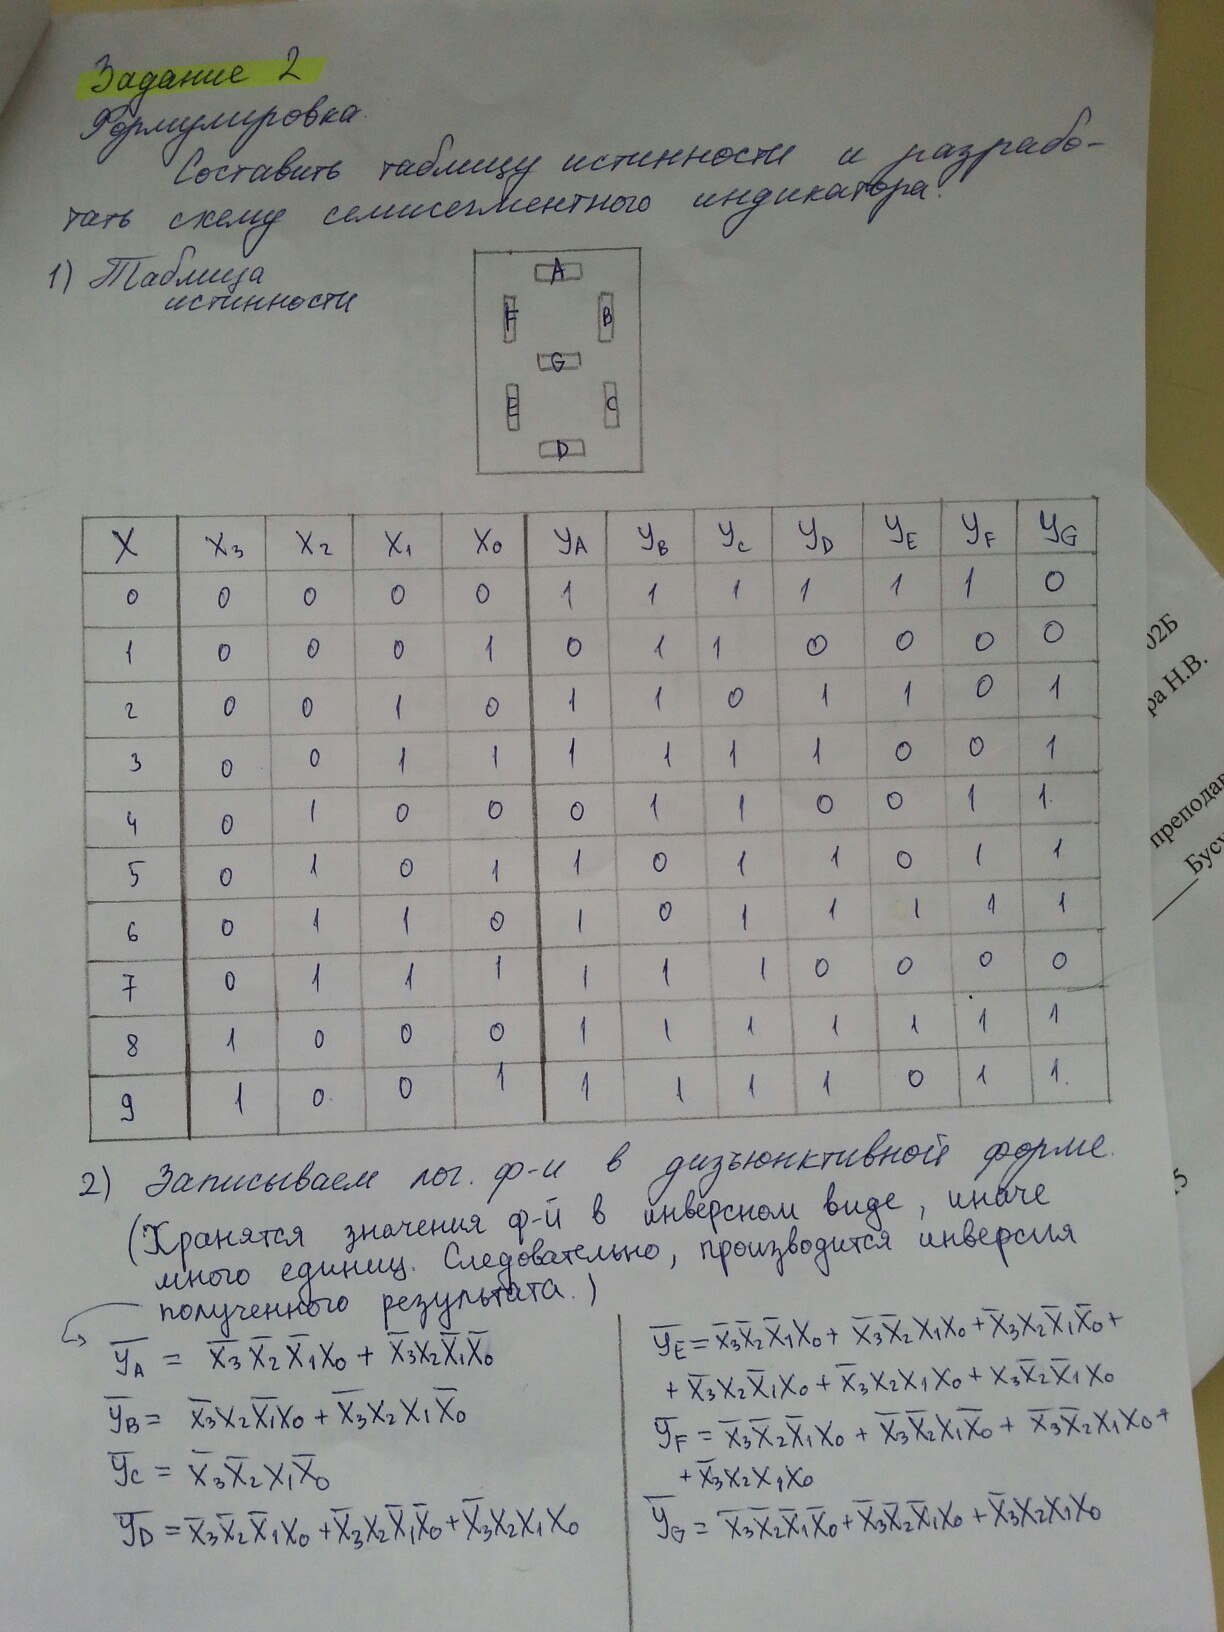 Задание 2
Формулировка.
Составить таблицу истинности и разрабо-
тать схему семисегментного индикатора.
1) Таблица
истинности
A
F B
G
E C
D
X X₃ X₂ X₁ X₀ Y_A Y_B Y_C Y_D Y_E Y_F Y_G
0 0 0 0 0 1 1 1 1 1 1 0
1 0 0 0 1 0 1 1 0 0 0 0
2 0 0 1 0 1 1 0 1 1 0 1
3 0 0 1 1 1 1 1 1 0 0 1
4 0 1 0 0 0 1 1 0 0 1 1
5 0 1 0 1 1 0 1 1 0 1 1
6 0 1 1 0 1 0 1 1 1 1 1
7 0 1 1 1 1 1 1 0 0 0 0
8 1 0 0 0 1 1 1 1 1 1 1
9 1 0 0 1 1 1 1 1 0 1 1
2) Записываем лог. ф-и в дизъюнктивной форме.
(Хранятся значения ф-й в инверсном виде, иначе
много единиц. Следовательно, производится инверсия
полученного результата.)
Y̅_A = X̅₃X̅₂X̅₁X₀ + X̅₃X₂X̅₁X̅₀
Y̅_B = X̅₃X₂X̅₁X₀ + X̅₃X₂X₁X̅₀
Y̅_C = X̅₃X̅₂X₁X̅₀
Y̅_D = X̅₃X̅₂X̅₁X₀ + X̅₃X₂X̅₁X̅₀ + X̅₃X₂X₁X₀
Y̅_E = X̅₃X̅₂X̅₁X₀ + X̅₃X̅₂X₁X₀ + X̅₃X₂X̅₁X̅₀ +
+ X̅₃X₂X̅₁X₀ + X̅₃X₂X₁X₀ + X₃X̅₂X̅₁X₀
Y̅_F = X̅₃X̅₂X̅₁X₀ + X̅₃X̅₂X₁X̅₀ + X̅₃X̅₂X₁X₀ +
+ X̅₃X₂X₁X₀
Y̅_G = X̅₃X̅₂X̅₁X̅₀ + X̅₃X̅₂X̅₁X₀ + X̅₃X₂X₁X₀
02Б
ра Н.В.
препода
Бус